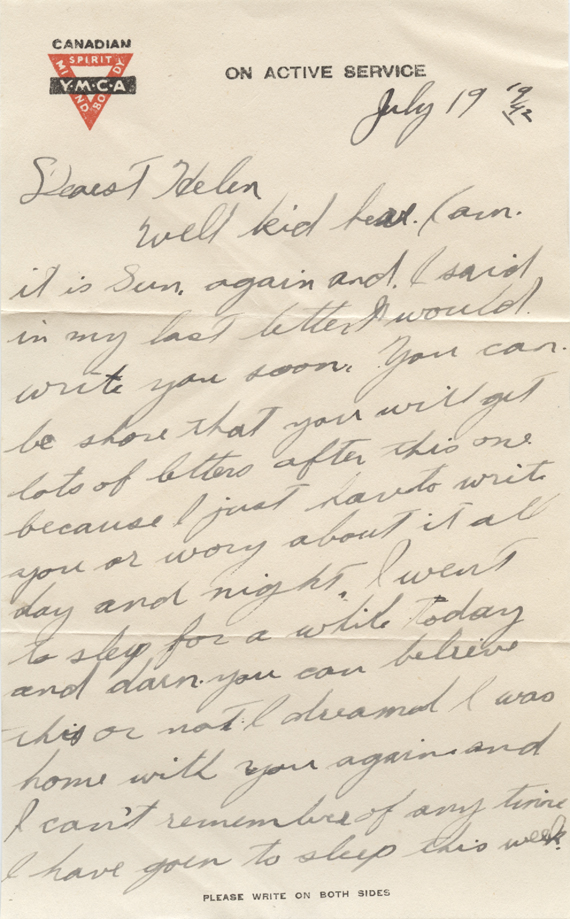 CANADIAN
SPIRIT
MIND BODY
Y·M·C·A
ON ACTIVE SERVICE
July 19 19/42
Dearest Helen
Well kid hear I am.
it is Sun. again and. I said
in my last letter I would.
write you soon. You can.
be shore that you will get
lots of letters after this one
because I just havto write
you or wory about it all
day and night. I went
to slep for a while today
and darn you can believe
this or not I dreamed I was
home with you again and
I can't remember of any time
I have goen to sleep this week.
PLEASE WRITE ON BOTH SIDES